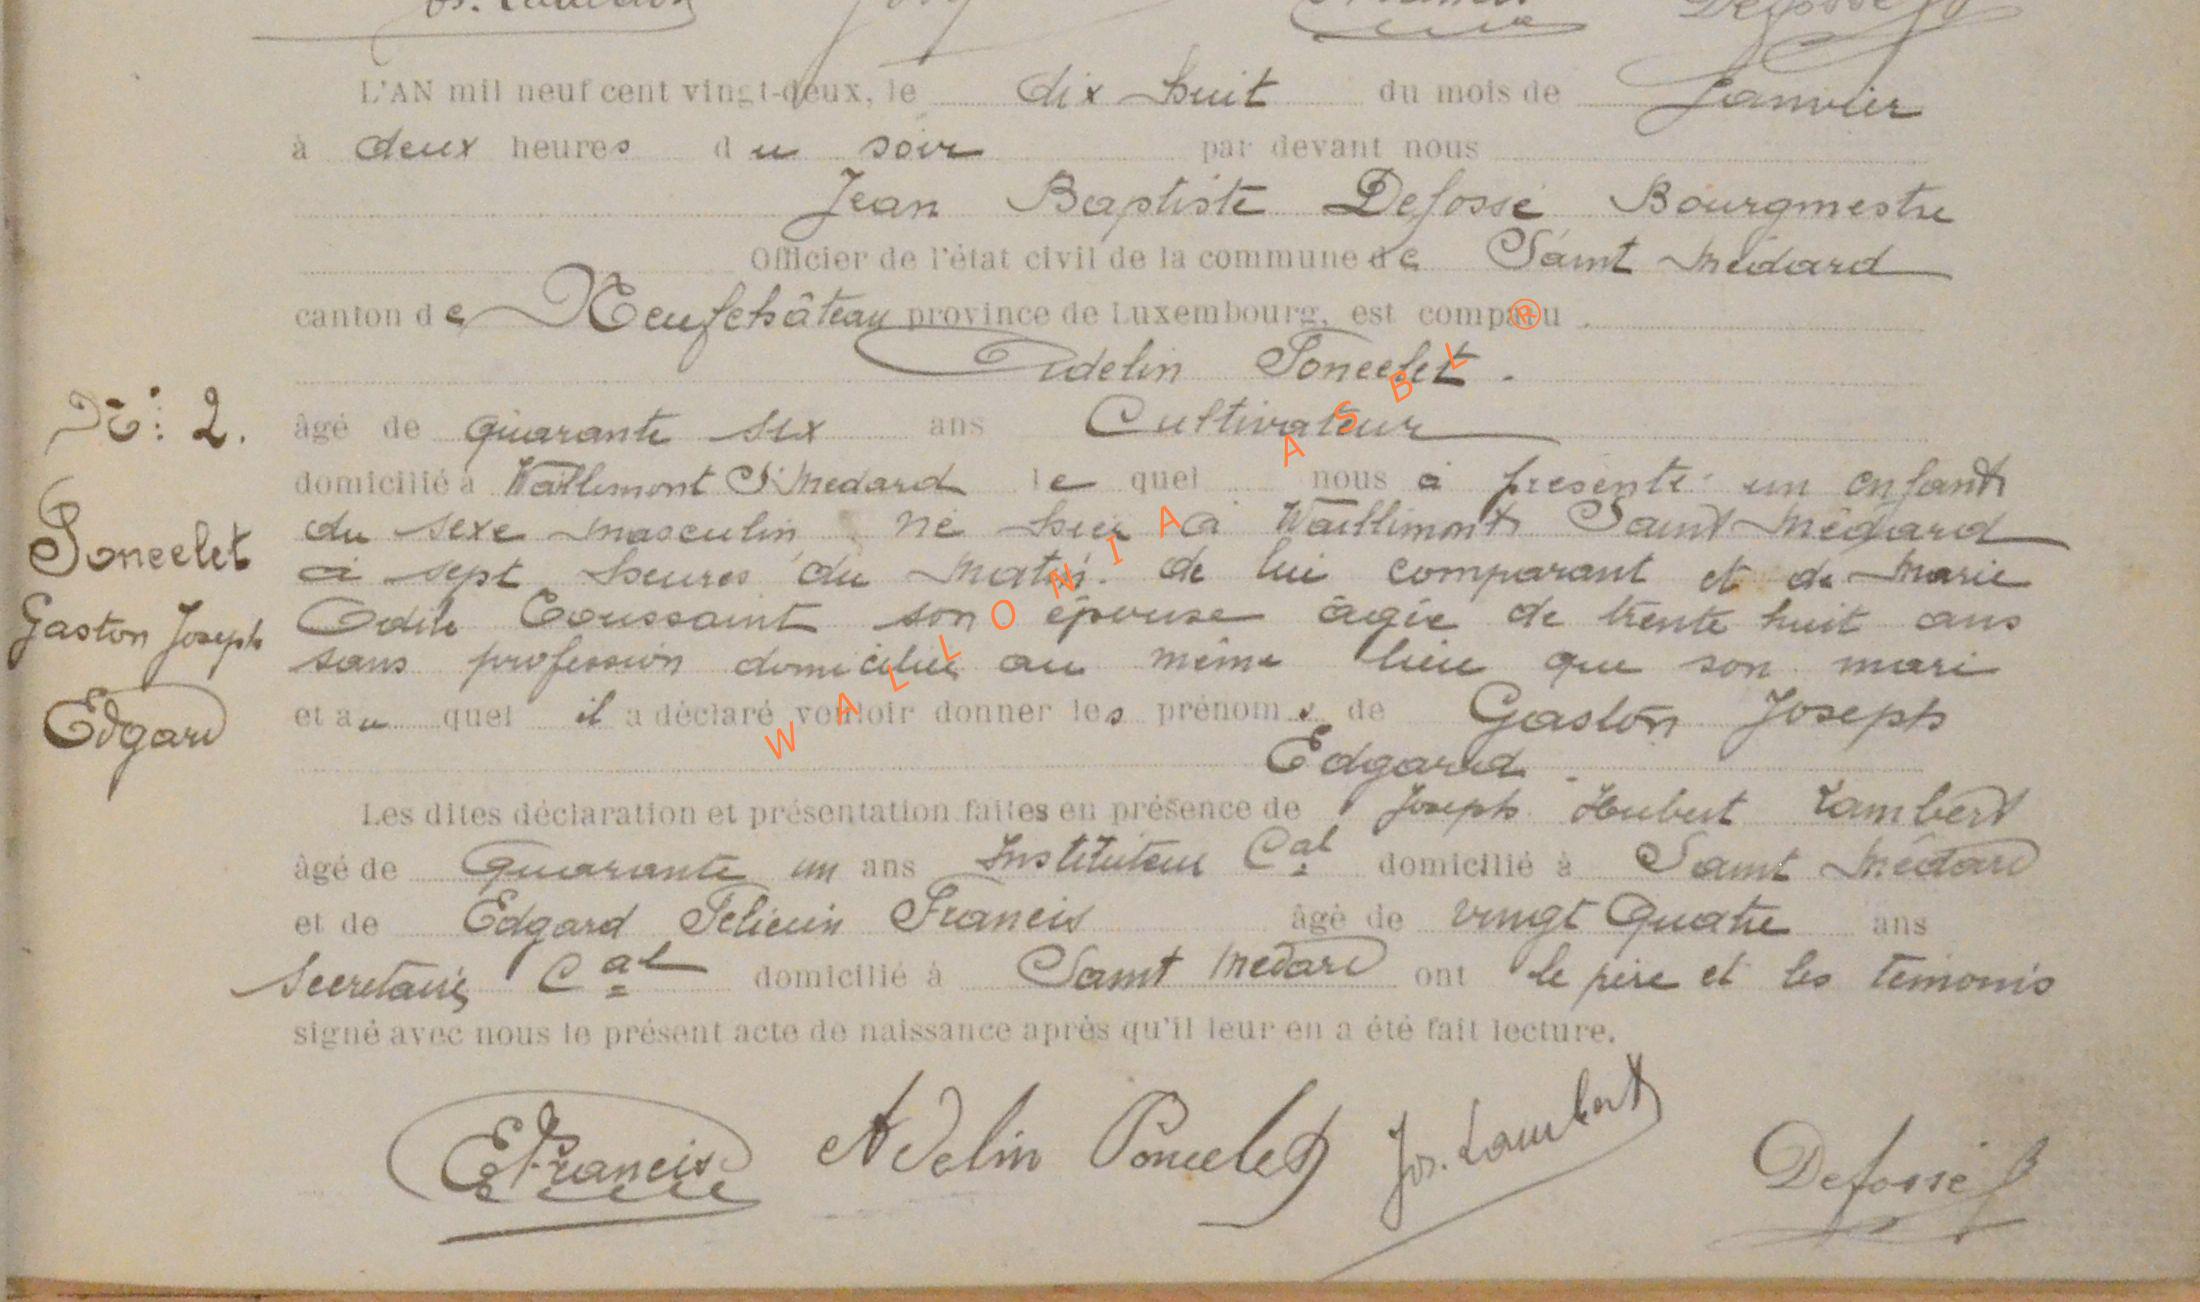 L'AN mil neuf cent vingt-deux, le dix huit du mois de Janvier
à deux heures du soir par devant nous
Jean Baptiste Defossé Bourgmestre
Officier de l'état civil de la commune de Saint Médard
canton de Neufchâteau province de Luxembourg, est comparu
Adelin Poncelet.
N°: 2.
âgé de quarante six ans Cultivateur
domicilié à Waillimont St Médard lequel nous a présenté un enfant
Poncelet
du sexe masculin né hier à Waillimont Saint Médard
à sept heures du matin. de lui comparant et de Marie
Gaston Joseph
Odile Toussaint son épouse âgée de trente huit ans
sans profession domiciliée au même lieu que son mari
Edgard
et au quel il a déclaré vouloir donner les prénoms de Gaston Joseph
Edgard.
Les dites déclaration et présentation faites en présence de Joseph Hubert Lambert
âgé de quarante un ans Instituteur Cal domicilié à Saint Médard
et de Edgard Félicien Francis âgé de vingt quatre ans
Secrétaire Cal domicilié à Saint Médard ont le père et les témoins
signé avec nous le présent acte de naissance après qu'il leur en a été fait lecture.
E Francis Adelin Poncelet Jos. Lambert Defossé
WALLONIA ASBL ®